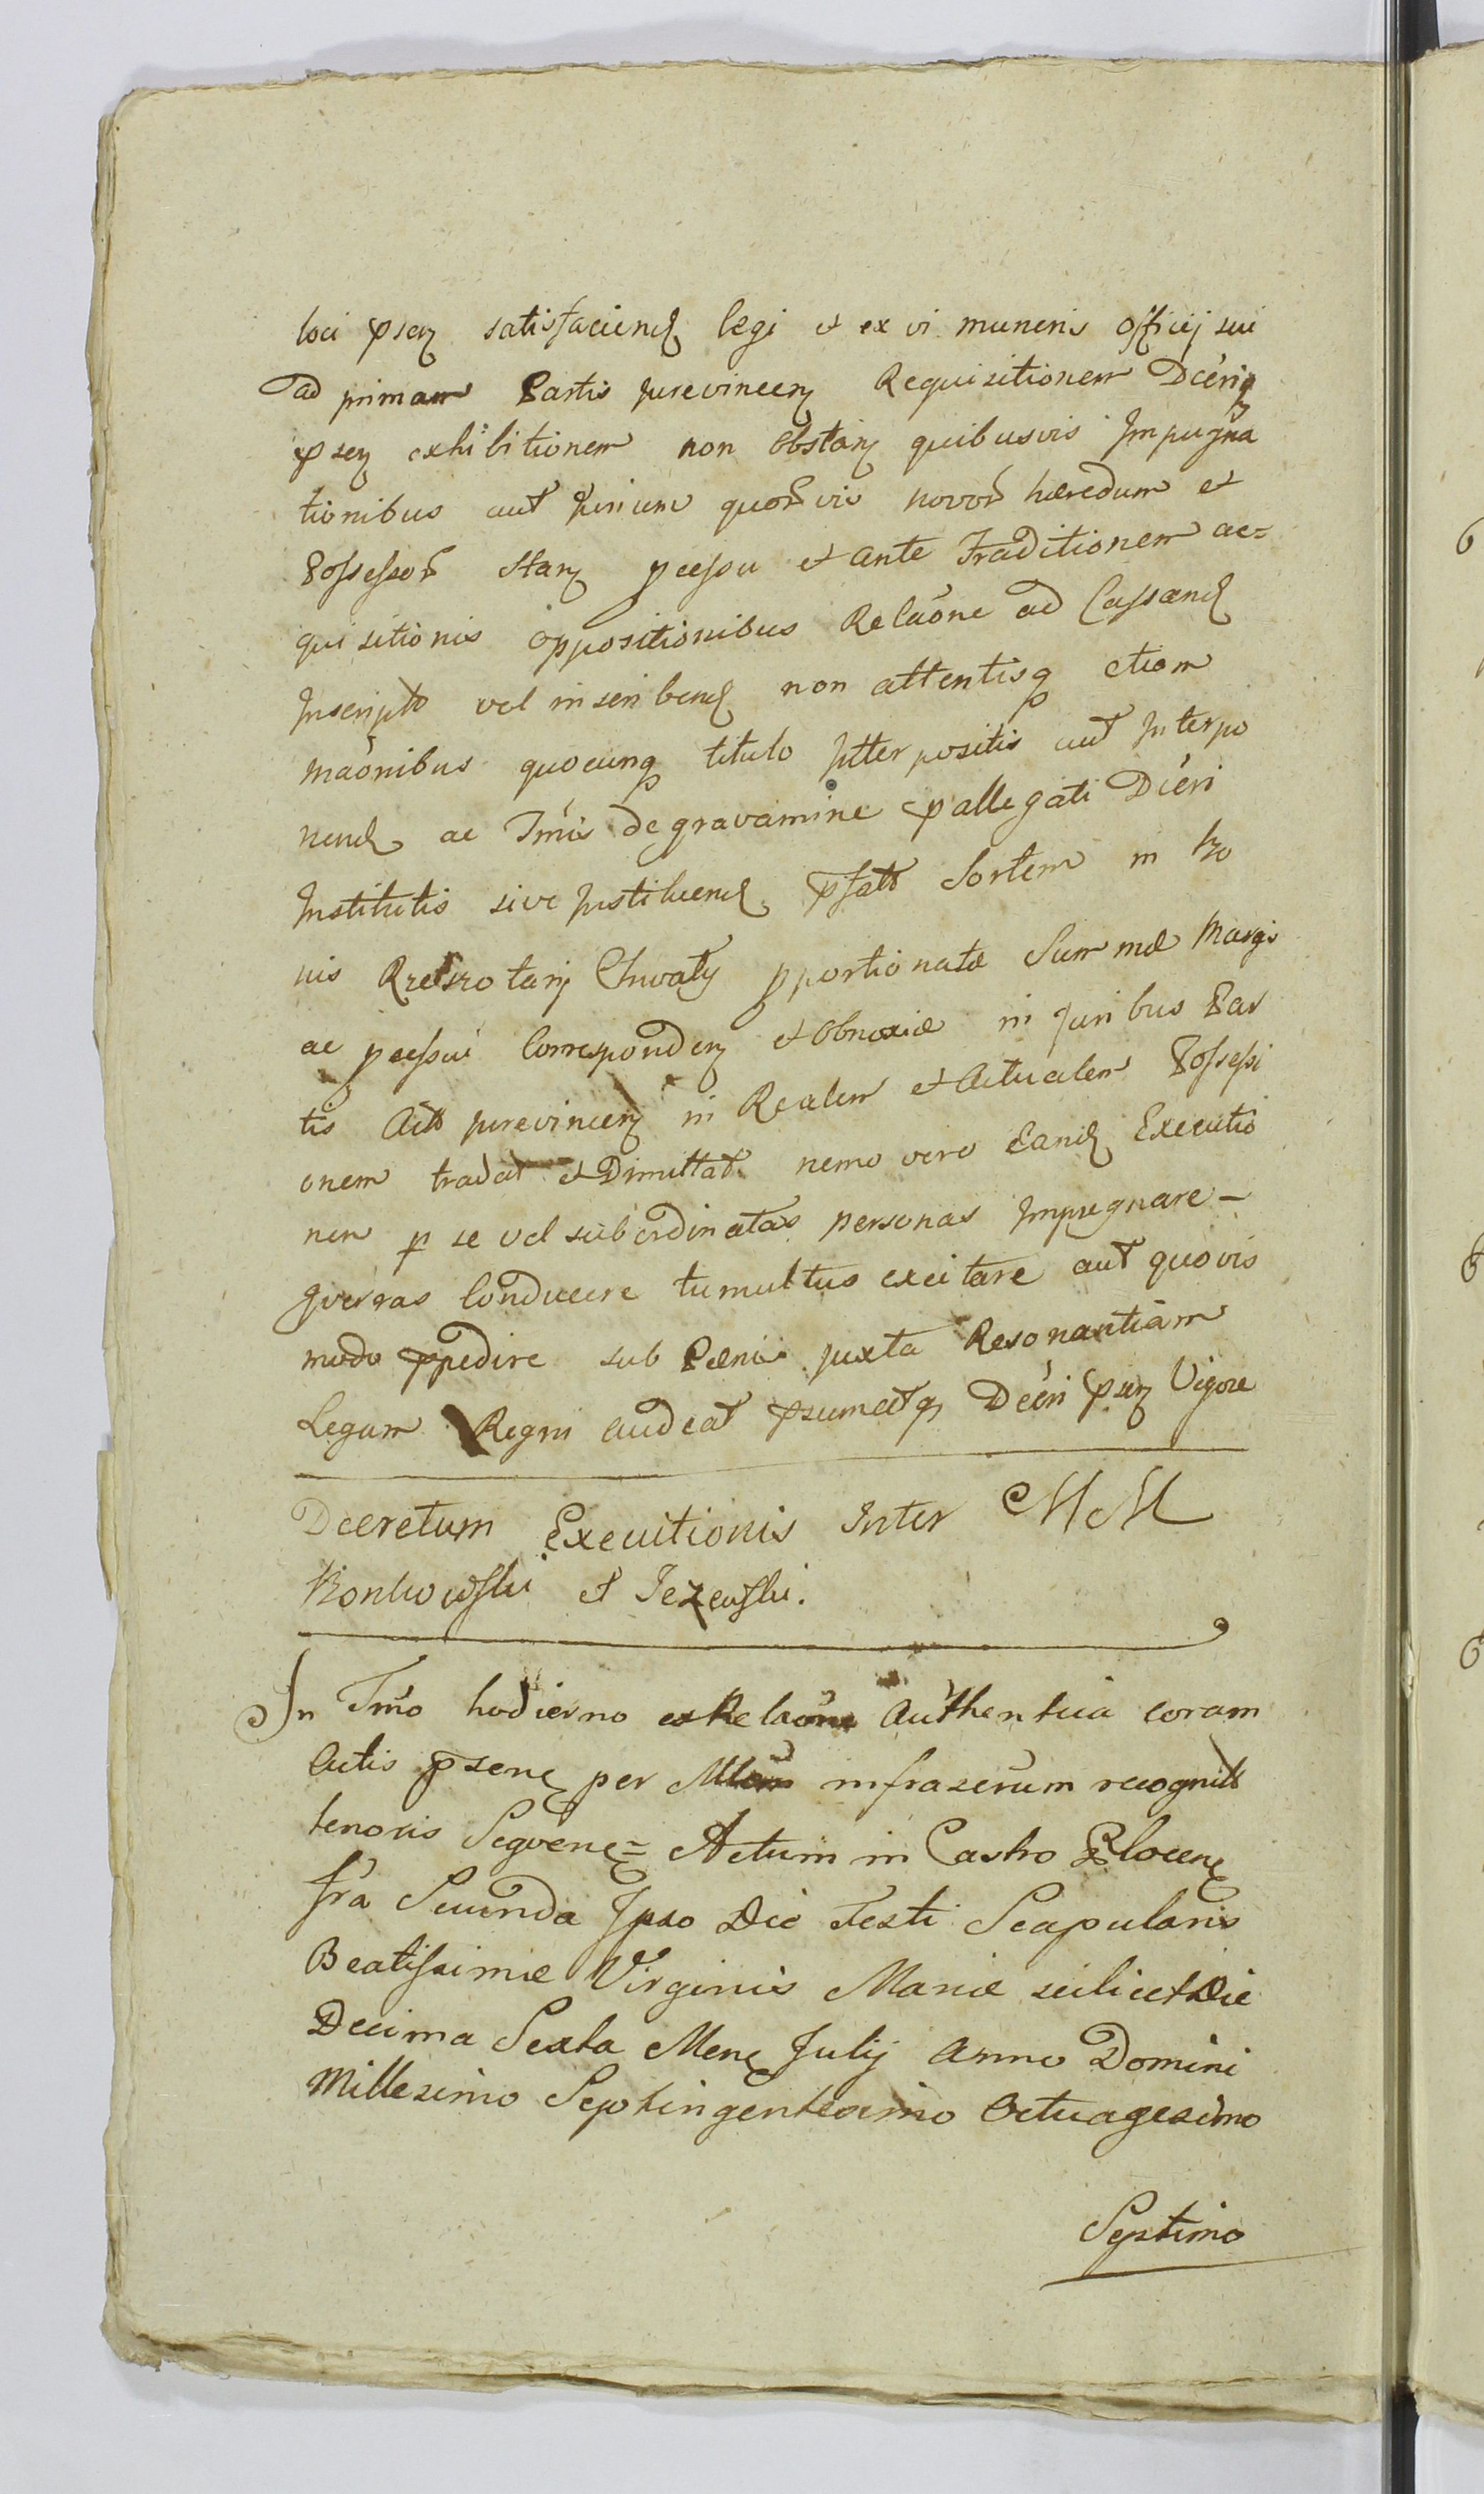 loci psen satisfaciend legi et ex vi muneris officij sui
ad primam Partis jurevincen Requisitionem Dcēriq
psen exhibitionem non obstan quibusvis Impugna
tionibus aut jurium quorvis novor hæredum et
Possessor stan pcessu et ante Traditionem ac=
quisitionis oppositionibus Relaōne ad Cassand
Inscript vel inscribend non attentisq etiam
maōnibus quocunq titulo Interpositis aut Interpo
nend ac Tmīs de gravamine pallegati Dcēri
Institutis sive Instituend pfatt Sortem in bo
nis Rzeszotary Chwały pportionatæ Summæ Margi
ac pcessui Corresponden et obnoxiæ in juribus Par
tis Actt jurevincen in Realem et Actualem Possessi
onem tradat et Dimittat nemo vero Eand Executio
nem p se vel subordinatas personas Impugnare –
gverras Conducere tumultus excitare aut quovis
modo ppedire sub Pænis juxta Resonantiam
Legum Regni audeat psumatq Dcēri psen Vigore
Decretum Executionis Inter MM
Bonkowski et Jezewski.
In Tmō hodierno ex Relaōne Authentica coram
Actis psenc per infrascrūm recognitt
tenoris Seqvenc= Actum in Castro Plocenc
frā Secunda Ipso Die Festi Scapularis
Beatissimæ Virginis Mariæ scilicet Die
Decima Sexta Menc Julij Anno Domini
Millesimo Septingentesimo Octuagesimo
Septimo